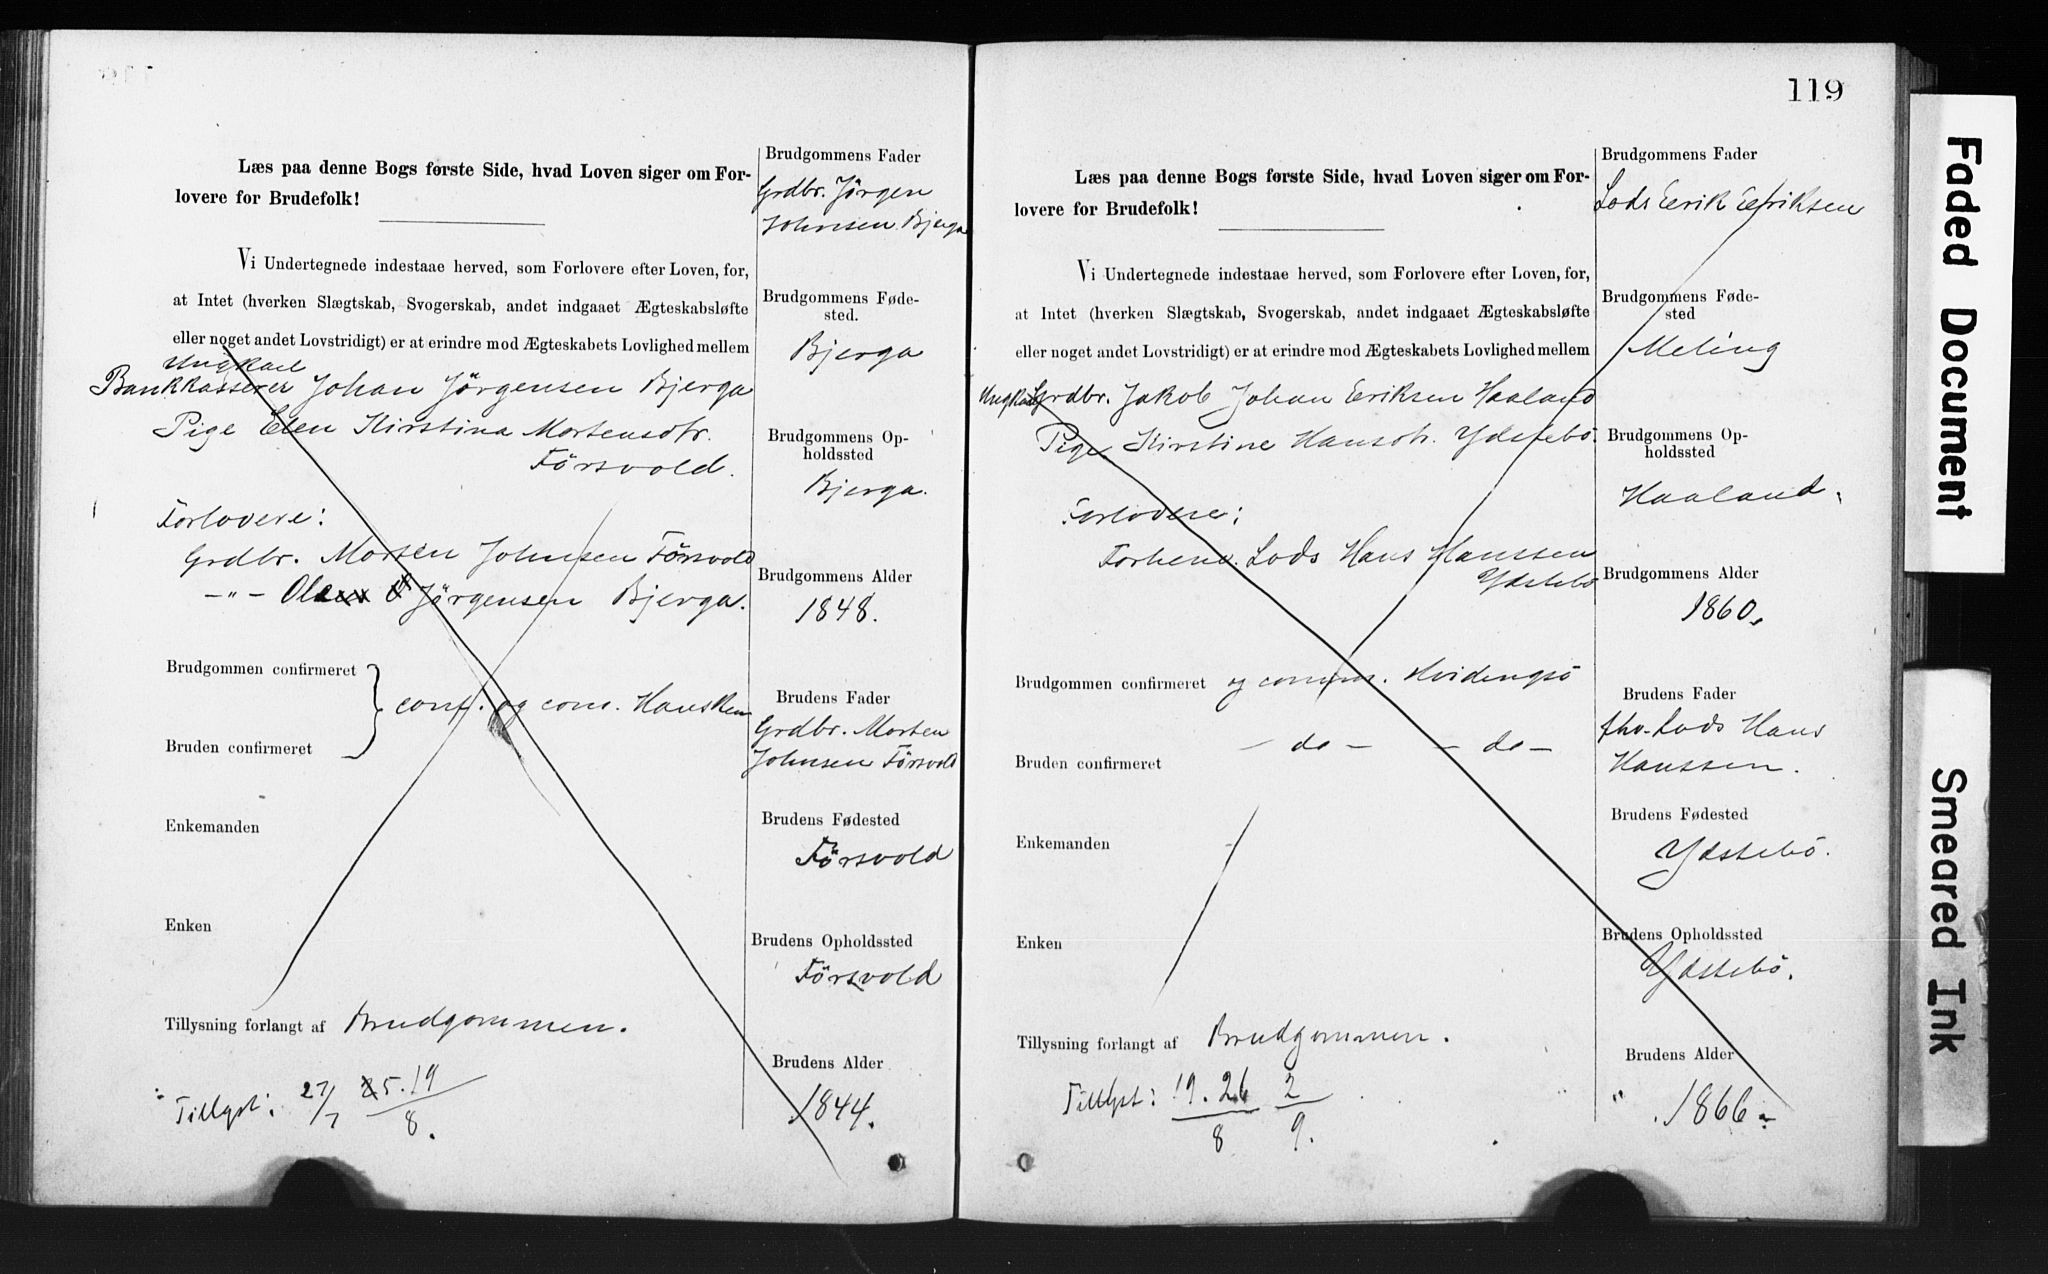 Læs paa denne Bogs første Side, hvad Loven siger om For-
lovere for Brudefolk!
Vi Undertegnede indestaae herved, som Forlovere efter Loven, for,
at Intet (hverken Slægtskab, Svogerskab, andet indgaaet Ægteskabsløfte
eller noget andet Lovstridigt) er at erindre mod Ægteskabets Lovlighed mellem
Ungkarl
Bankkasserer Johan Jörgensen Bjerga
Pige Elen Kirstina Mortensdtr.
Försvold.
Forlovere:
Grdbr. Morten Johnsen Försvold
-"- Ole Jörgensen Bjerga.
Brudgommen confirmeret
conf. og com. Hausken
Bruden confirmeret
Enkemanden
Enken
Tillysning forlangt af Brudgommen.
Tillyst: 27/7 5.19/8.
Brudgommens Fader
Grdbr. Jörgen
Johnsen Bjerga
Brudgommens Føde-
sted.
Bjerga
Brudgommens Op-
holdssted
Bjerga.
Brudgommens Alder
1848.
Brudens Fader
Grdbr. Morten
Johnsen Försvold
Brudens Fødested
Försvold
Brudens Opholdssted
Försvold
Brudens Alder
1844.
119
Læs paa denne Bogs første Side, hvad Loven siger om For-
lovere for Brudefolk!
Vi Undertegnede indestaae herved, som Forlovere efter Loven, for,
at Intet (hverken Slægtskab, Svogerskab, andet indgaaet Ægteskabsløfte
eller noget andet Lovstridigt) er at erindre mod Ægteskabets Lovlighed mellem
Ungkarl Grdbr. Jakob Johan Eriksen Haaland
Pige Kirstine Hansdtr. Ydstebö
Forlovere:
Lods Hans Hanssen
Ydstebö
Brudgommen confirmeret og comm. Hvidingsö
Bruden confirmeret - do - - do -
Enkemanden
Enken
Tillysning forlangt af Brudgommen.
Tillyst: 19.26/8 2/9.
Brudgommens Fader
Lods Eerik Eeriksen
Brudgommens Føde-
sted
Meling
Brudgommens Op-
holdssted
Haaland.
Brudgommens Alder
1860.
Brudens Fader
fhv. Lods Hans
Hanssen.
Brudens Fødested
Ydstebö.
Brudens Opholdssted
Ydstebö.
Brudens Alder
1866
Faded Document
Smeared Ink